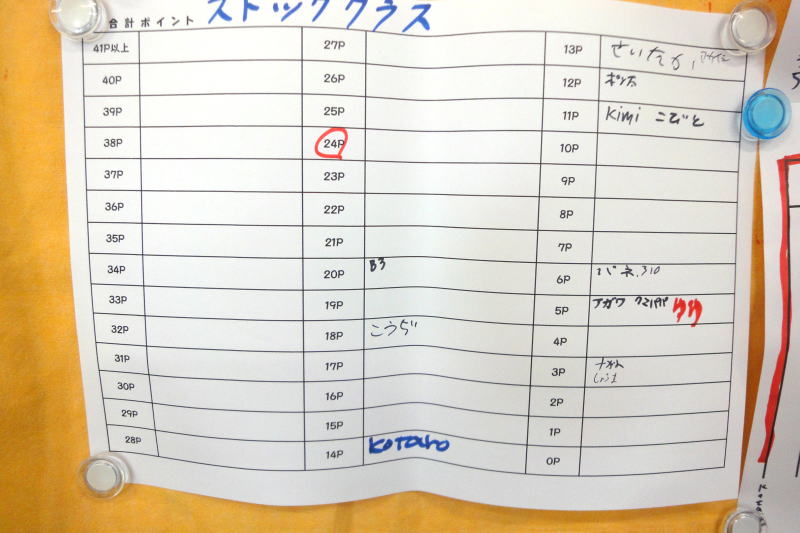 合計ポイント ストッククラス
41P以上
40P
39P
38P
37P
36P
35P
34P
33P
32P
31P
30P
29P
28P
27P
26P
25P
24P
23P
22P
21P
20P B3
19P
18P こうぢ
17P
16P
15P
14P KOTARO
13P せいたか,
12P ポン太
11P Kimi こびと
10P
9P
8P
7P
6P バネ.310
5P アガワ
4P
3P
2P
1P
0P